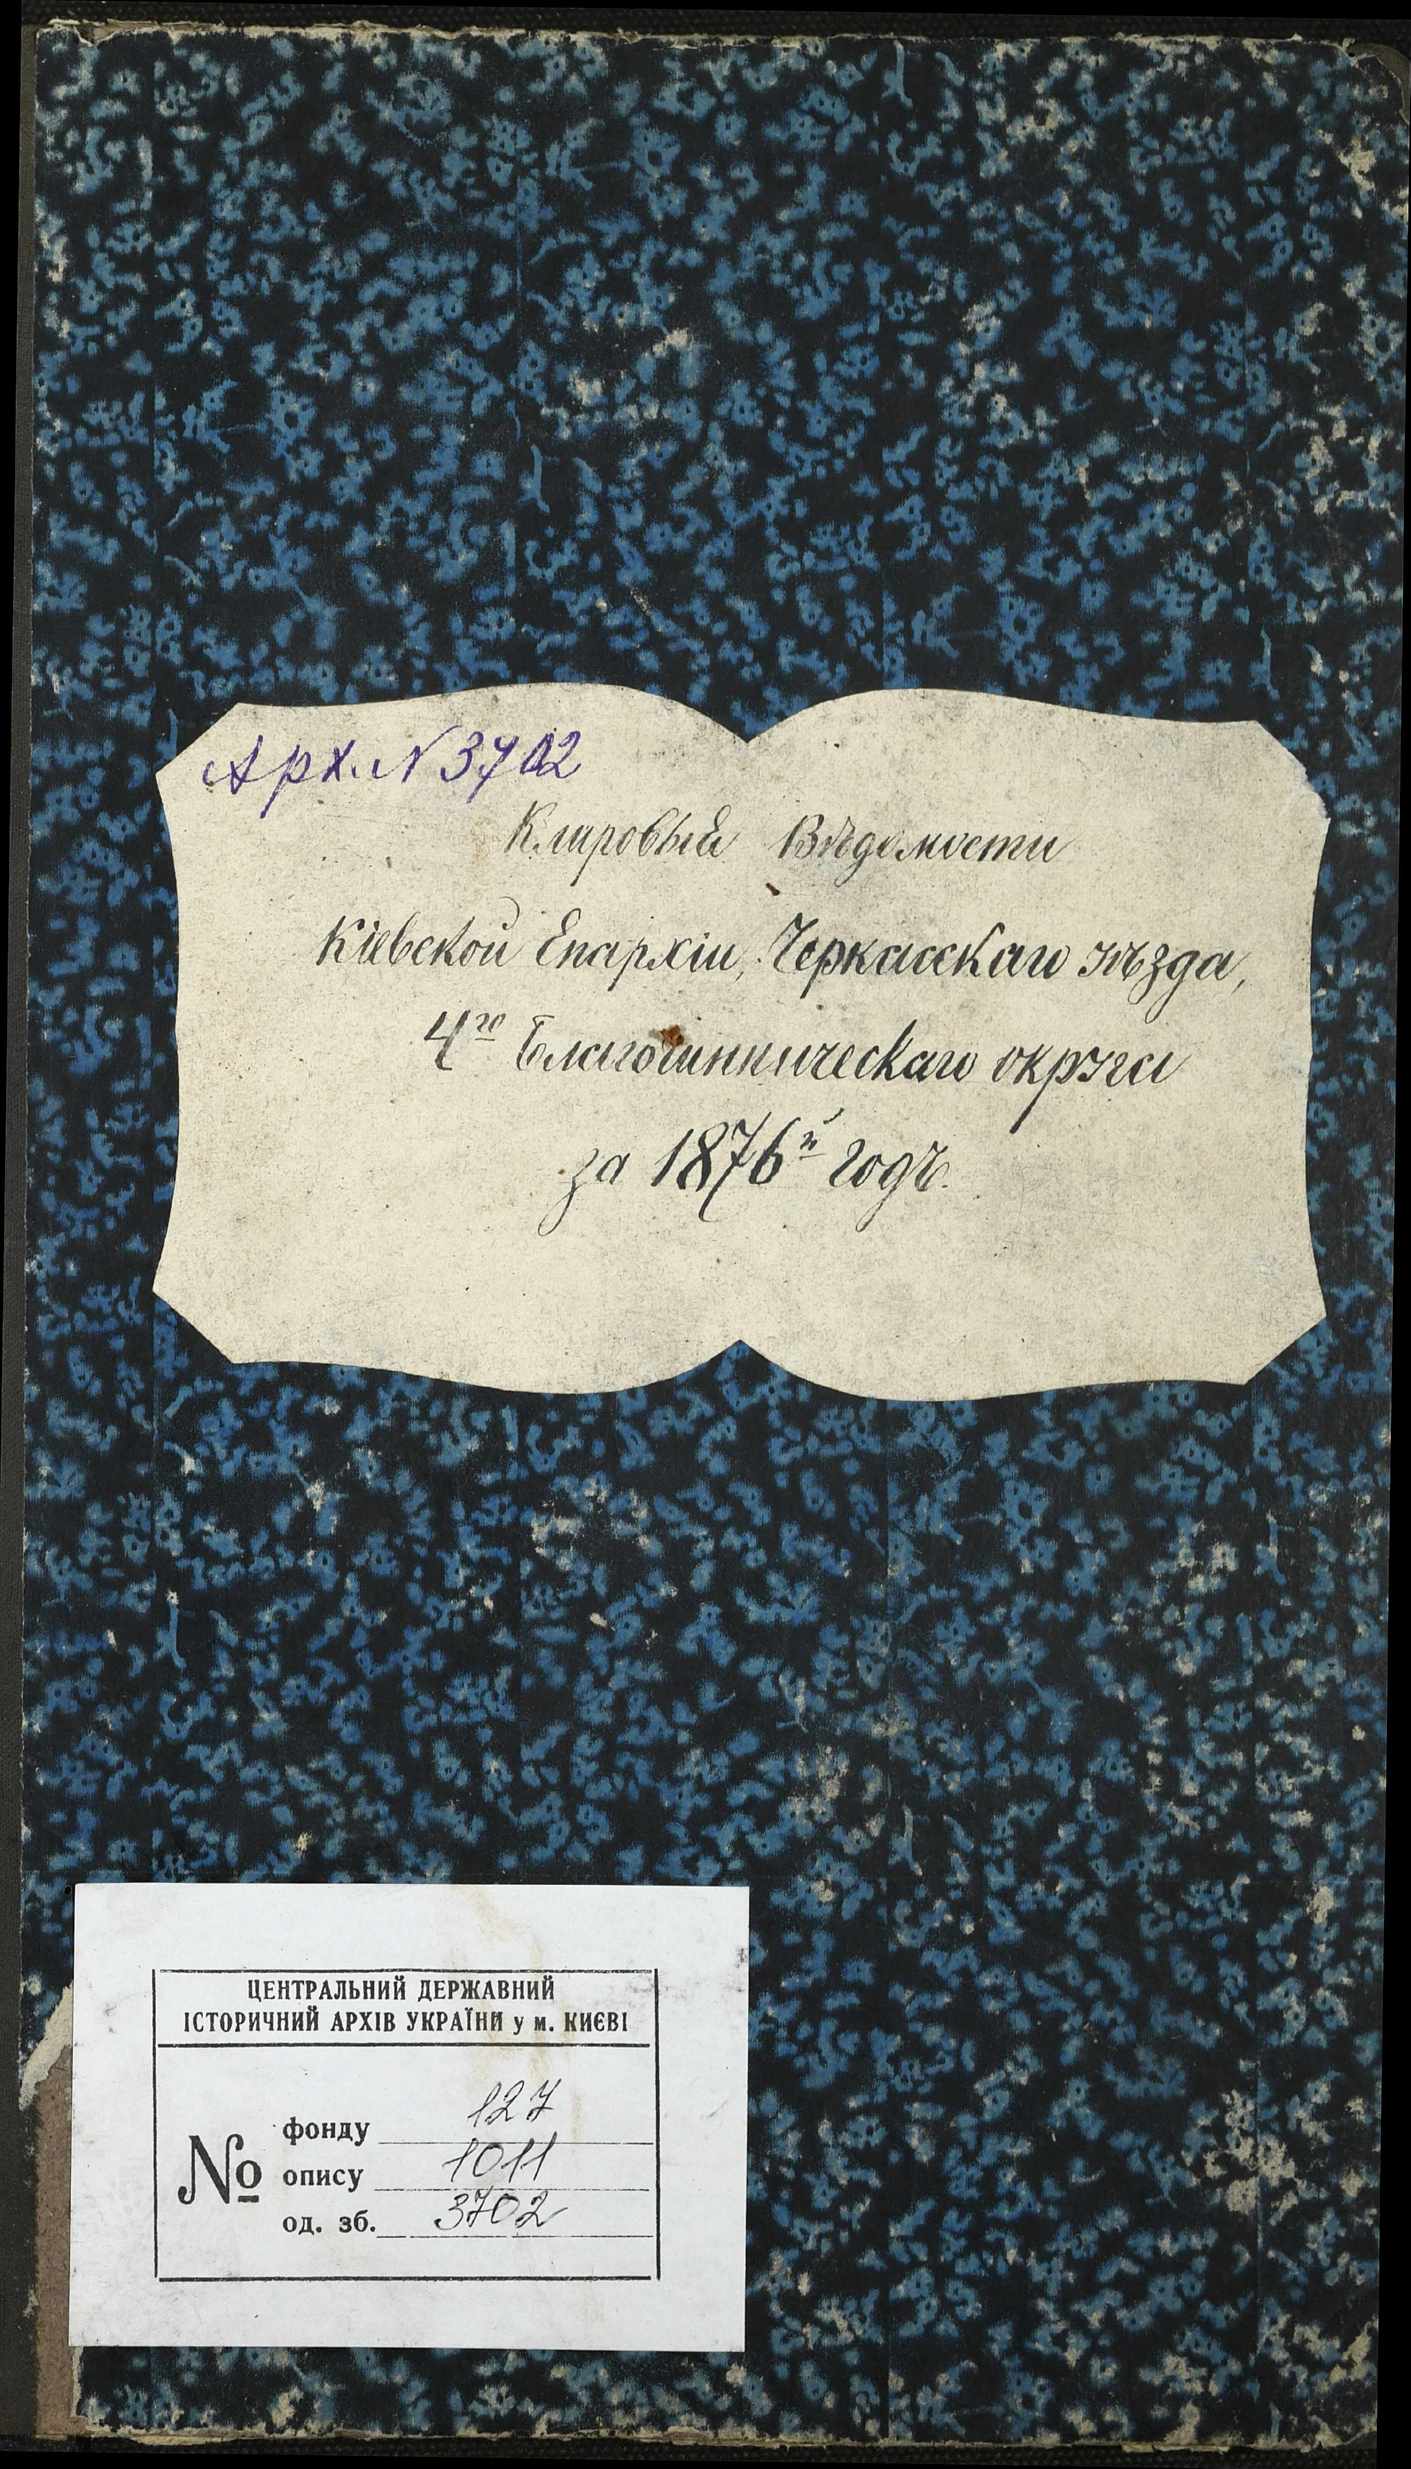 Арх. N 3702
Клировыя Вѣдомости
Кіевской Епархіи, Черкасскаго уѣзда,
4го Благочинническаго округа
за 1876й годъ.
ЦЕНТРАЛЬНИЙ ДЕРЖАВНИЙ
ІСТОРИЧНИЙ АРХІВ УКРАЇНИ у м. КИЄВІ
№
фонду 127
опису 1011
од. зб. 3702